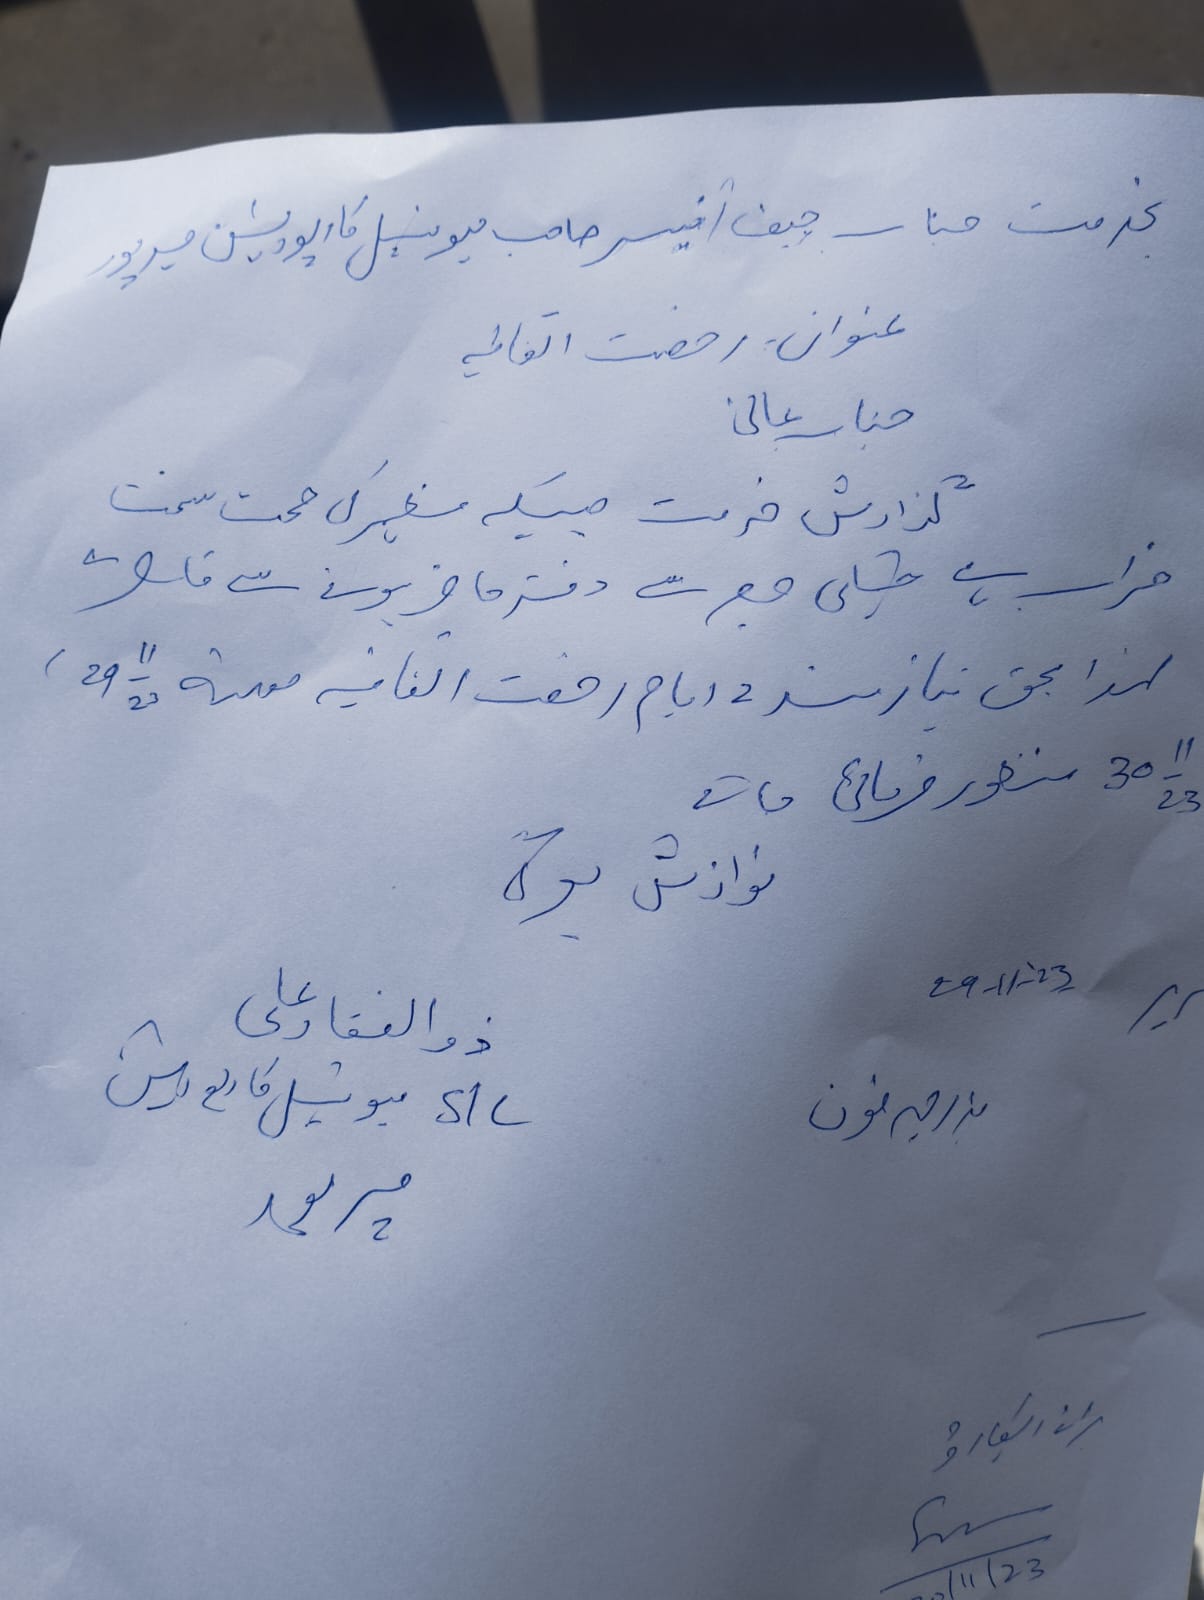 بخدمت جناب چیف آفیسر صاحب میونسپل کارپوریشن میرپور
عنوان:۔ رخصت اتفاقیہ
جناب عالی
گزارش خدمت ہیکہ صغیر کی صحت سخت
خراب ہے جسکی وجہ سے دفتر حاضر ہونے سے قاصر ہے
لہذا بحق نیازمند 2 ایام رخصت اتفاقیہ مورخہ 29 11/23،
30 11/23 منظور فرمائی جائے
نوازش ہوگی
29-11-23
ذوالفقار علی
بذریعہ فون
S/C میونسپل کارپوریشن
میرپور
برائے ریکارڈ
/11/23